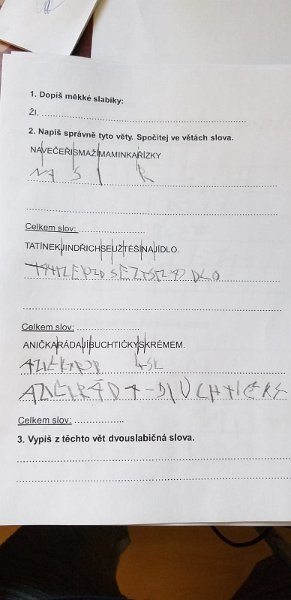 1. Dopiš měkké slabiky:
ŽI,
2. Napiš správně tyto věty. Spočítej ve větách slova.
NAVEČEŘISMAŽÍMAMINKAŘÍZKY
NA S I R
Celkem slov:
TATÍNEKJINDŘICHSEUŽTĚŠÍNAJÍDLO.
Celkem slov:
ANIČKARÁDAJÍBUCHTIČKYSKRÉMEM.
Celkem slov:
3. Vypiš z těchto vět dvouslabičná slova.